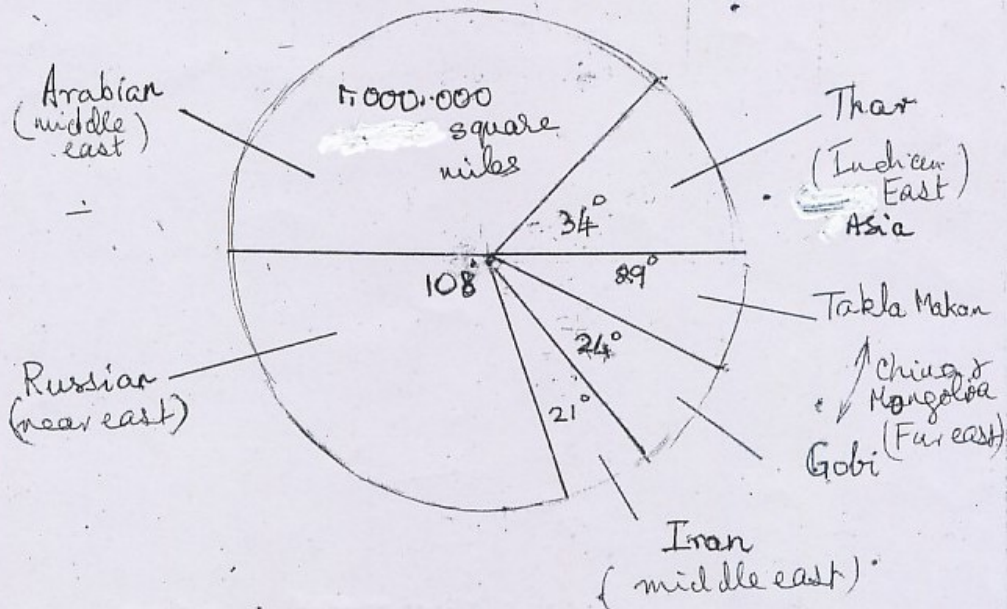 Arabian
(middle
east)
1,000,000
square
miles
Thar
(Indian
East)
Asia
34°
29°
108°
Takla Makan
24°
China &
Mongolia
(Far east)
Russian
(near east)
21°
Gobi
Iran
(middle east)